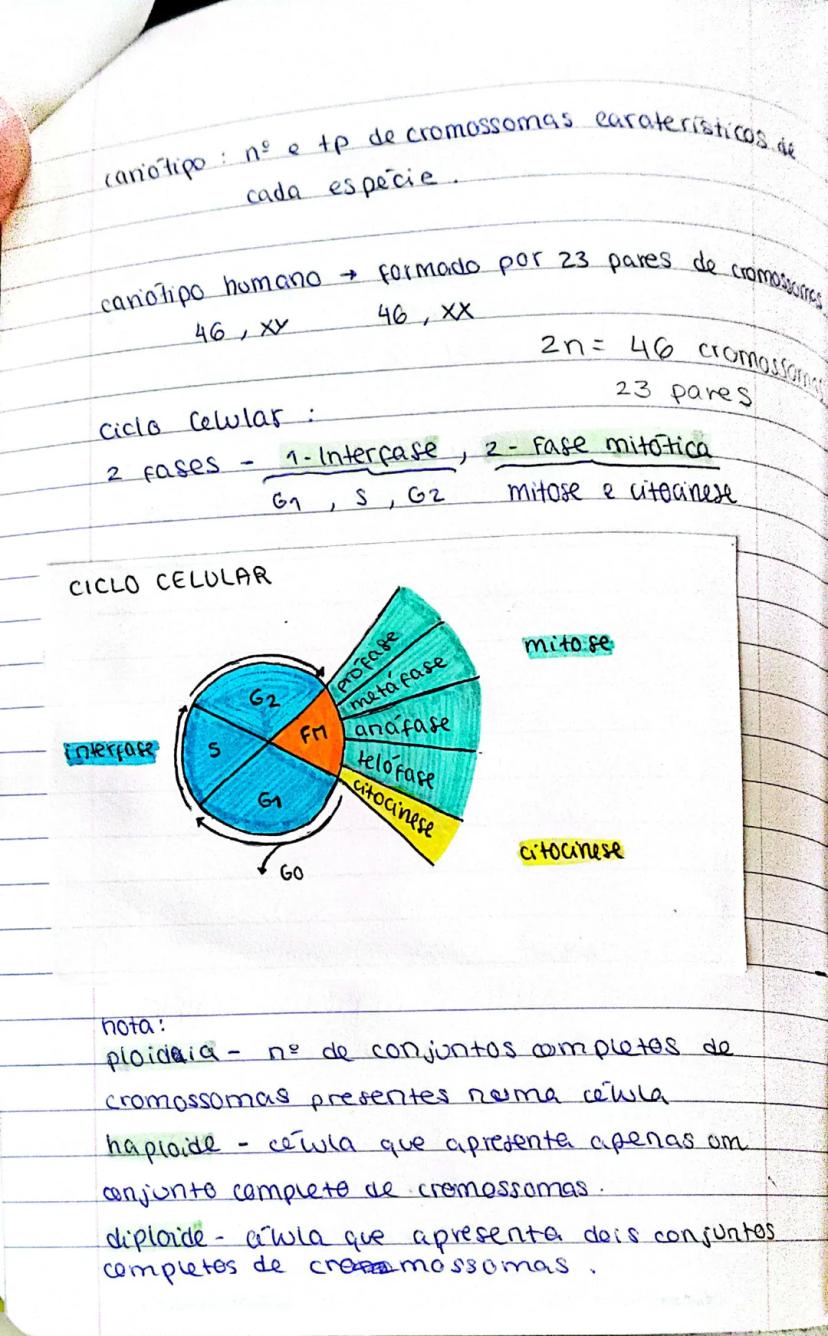 cariótipo : nº e tp de cromossomas caraterísticos de
cada espécie.
cariótipo humano → formado por 23 pares de cromossomas
46, XY 46, XX
2n = 46 cromossomas
23 pares
ciclo celular :
2 fases - 1-Interfase, 2-Fase mitótica
G1, S, G2 mitose e citocinese
CICLO CELULAR
mitose
prófase
metáfase
anáfase
telófase
citocinese
G2
FM
S
G1
interfase
citocinese
G0
nota:
ploidia - nº de conjuntos completos de
cromossomas presentes numa célula
haploide - célula que apresenta apenas um
conjunto completo de cromossomas.
diploide - célula que apresenta dois conjuntos
completos de cromossomas.